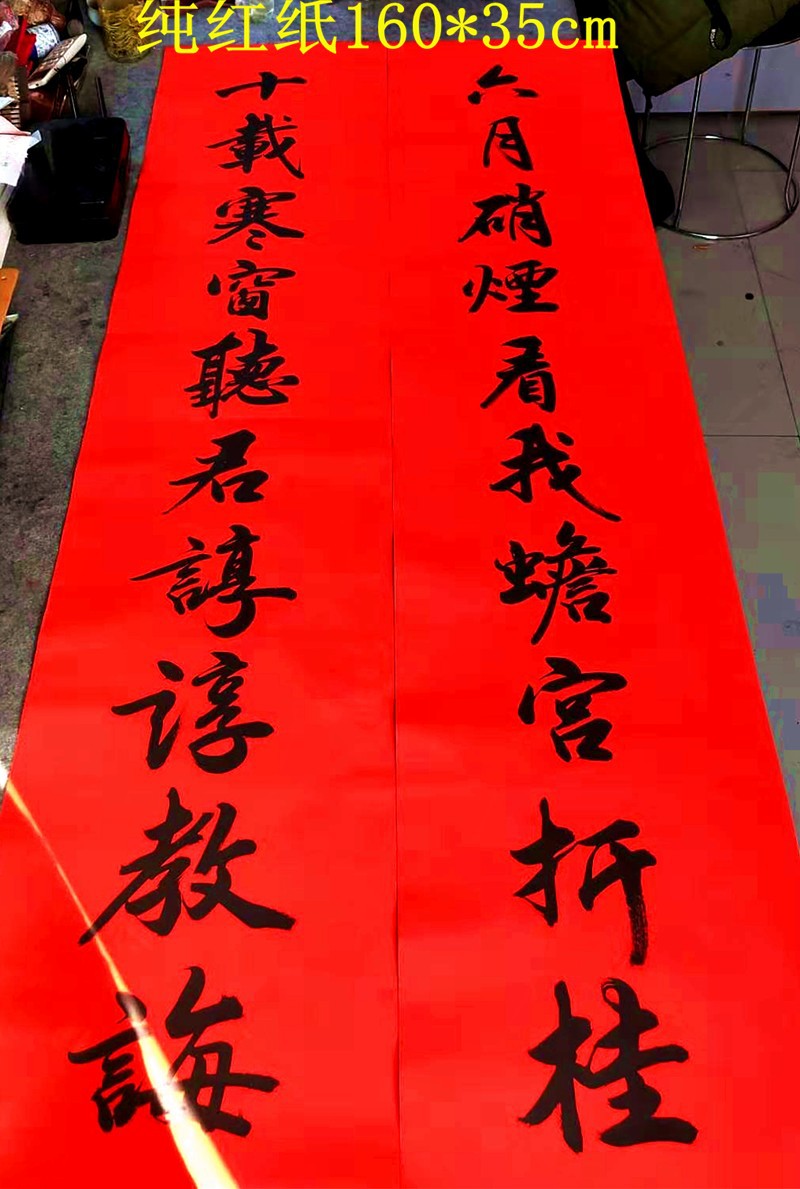 纯红纸160*35cm
六月硝煙看我蟾宮折桂
十載寒窗聽君諄諄教誨